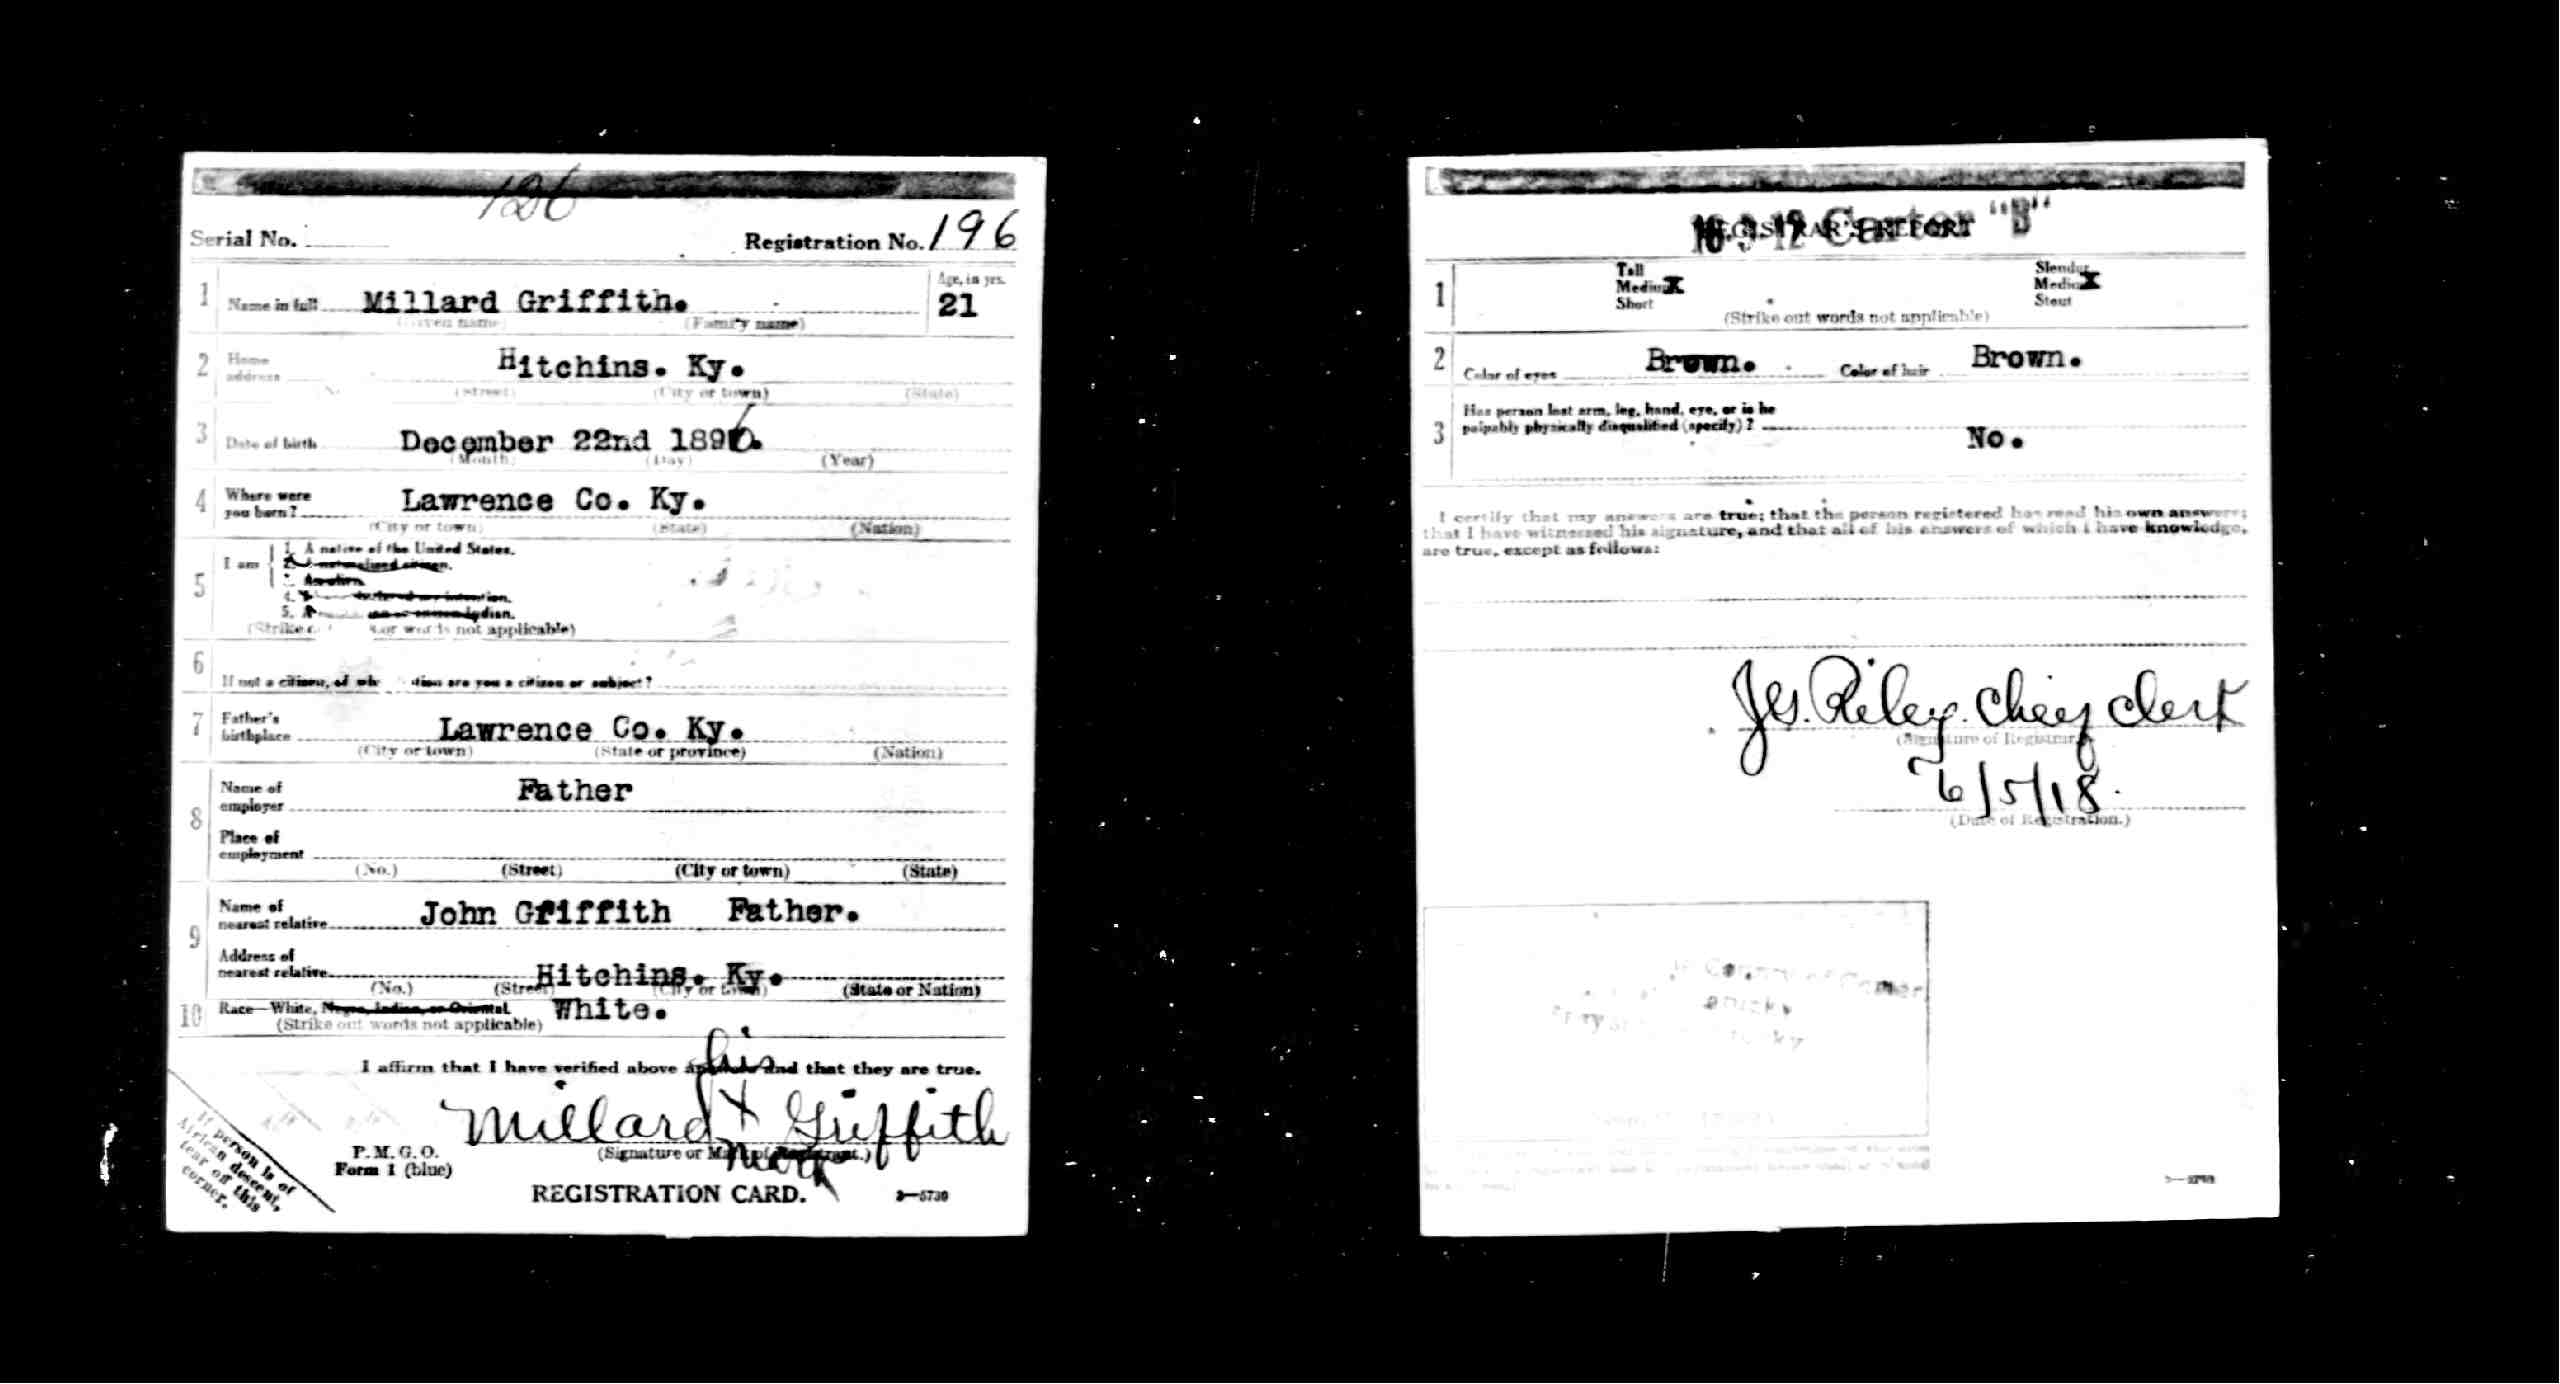 126
Serial No. Registration No. 196
1 Name in full Millard Griffith. Age, in yrs. 21
(Given name) (Family name)
2 Home address Hitchins. Ky.
(Street) (City or town) (State)
3 Date of birth December 22nd 1896.
(Month) (Day) (Year)
4 Where were you born? Lawrence Co. Ky.
(City or town) (State) (Nation)
5 I am
1. A native of the United States.
2. A naturalized citizen.
3. An alien.
4.
5.
(Strike or words not applicable)
6 If not a citizen, of nation are you a citizen or subject?
7 Father's birthplace Lawrence Co. Ky.
(City or town) (State or province) (Nation)
8 Name of employer Father
Place of employment
(No.) (Street) (City or town) (State)
9 Name of nearest relative John Griffith Father.
Address of nearest relative Hitchins. Ky.
(No.) (Street) (City or town) (State or Nation)
10 Race—White, Negro, Indian, or Oriental. White.
(Strike out words not applicable)
I affirm that I have verified above answers and that they are true.
his
Millard X Griffith
mark
(Signature or Mark of Registrant.)
P. M. G. O.
Form 1 (blue)
REGISTRATION CARD. 3—5730
If person is of
African descent,
tear off this
corner.
Carter "B"
REGISTRAR'S REPORT
1 Tall Slender
Medium X Medium X
Short Stout
(Strike out words not applicable)
2 Color of eyes Brown. Color of hair Brown.
3 Has person lost arm, leg, hand, eye, or is he
palpably physically disqualified (specify)?
No.
I certify that my answers are true; that the person registered has read his own answers;
that I have witnessed his signature, and that all of his answers of which I have knowledge,
are true, except as follows:
Riley. Chief Clerk
(Signature of Registrar)
6/5/18.
(Date of Registration.)